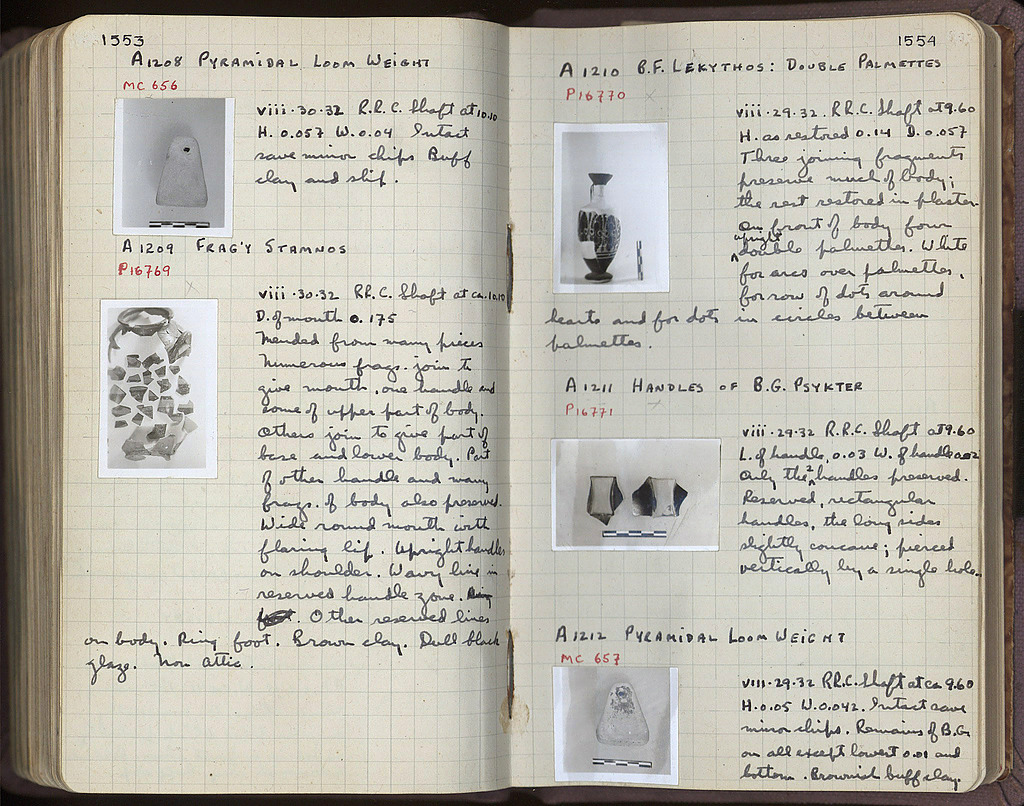 1553
A 1208 PYRAMIDAL LOOM WEIGHT
MC 656
viii·30·32 R.R.C. Shaft at 10.10
H. 0.057 W. 0.04 Intact
save minor chips Buff
clay and slip.
A 1209 FRAG'Y STAMNOS
P16769
viii·30·32 R.R.C. Shaft at ca. 10.10
D. of mouth 0.175
Mended from many pieces
Numerous frags. join to
give mouth, one handle and
some of upper part of body.
Others join to give part of
base and lower body. Part
of other handle and many
frags. of body also preserved.
Wide round mouth with
flaring lip. Upright handles
on shoulder. Wavy line in
reserved handle zone.
Other reserved lines
on body. Ring foot. Brown clay. Dull black
glaze. Non Attic.
1554
A 1210 B.F. LEKYTHOS: DOUBLE PALMETTES
P16770
viii·29·32. R.R.C. Shaft at 9.60
H. as restored 0.14 D. 0.057
Three joining fragments
preserve much of body;
the rest restored in plaster.
On front of body four
upright double palmettes. White
for arcs over palmettes,
for row of dots around
hearts and for dots in circles between
palmettes.
A 1211 HANDLES OF B.G. PSYKTER
P16771
viii·29·32 R.R.C. Shaft at 9.60
L. of handle, 0.03 W. of handle 0.02
Only the 2 handles preserved.
Reserved, rectangular
handles, the long sides
slightly concave; pierced
vertically by a single hole.
A 1212 PYRAMIDAL LOOM WEIGHT
MC 657
viii·29·32 R.R.C. Shaft at ca 9.60
H. 0.05 W. 0.042. Intact save
minor chips. Remains of B.G.
on all except lowest 0.01 and
bottom. Brownish buff clay.